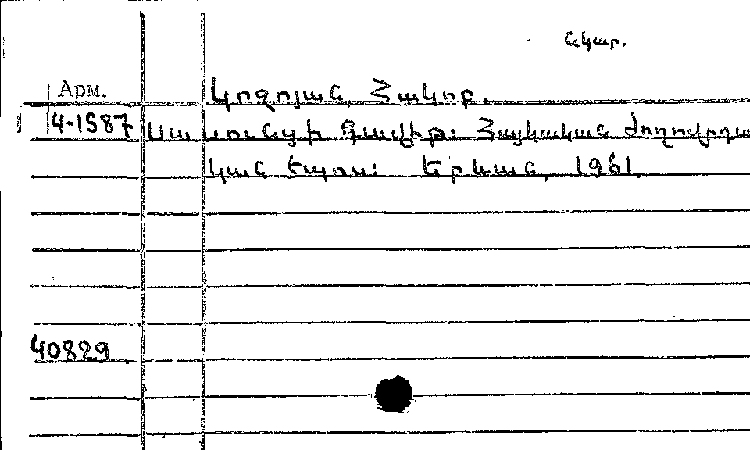 նկար.
Арм.
Կոջոյան, Հակոբ.
4-1587 Սասունցի Դավիթ: Հայկական ժողովրդա
կան էպոս: Երևան, 1961.
40829